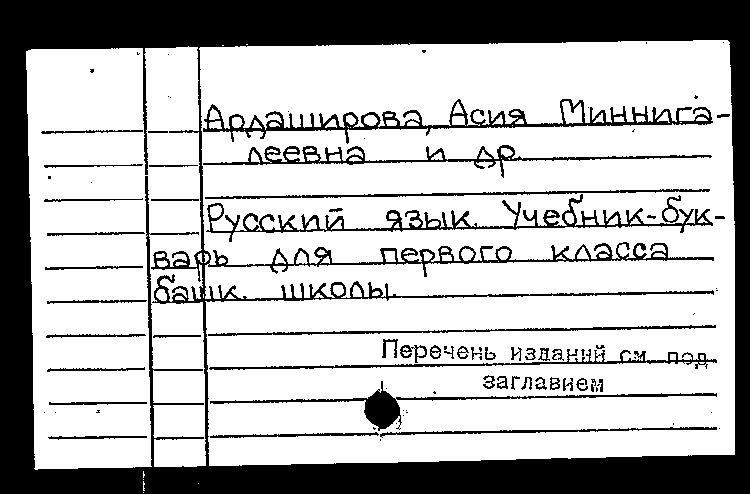 Ардаширова, Асия Миннига-
леевна и др.
Русский язык. Учебник-бук-
варь для первого класса
башк. школы.
Перечень изданий см. под
заглавием